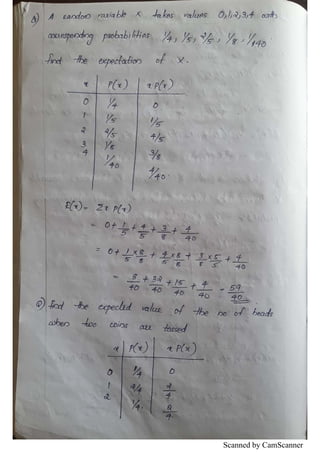 Q) A random variable x takes values 0,1,2,3,4 with
corresponding probabilities 1/4, 1/5, 2/5, 1/8, 1/40.
find the expectation of x.
x P(x) xP(x)
0 1/4 0
1 1/5 1/5
2 2/5 4/5
3 1/8 3/8
4 1/40 4/40.
E(x) = Σx P(x)
= 0 + 1/5 + 4/5 + 3/8 + 4/40
= 0 + 1/5 × 8/8 + 4/5 × 8/8 + 3/8 × 5/5 + 4/40
= 8/40 + 32/40 + 15/40 + 4/40 = 59/40
Q) find the expected value of the no of heads
when two coins are tossed
x P(x) xP(x)
0 1/4 0
1 2/4 2/4
2 1/4. 2/4
Scanned by CamScanner